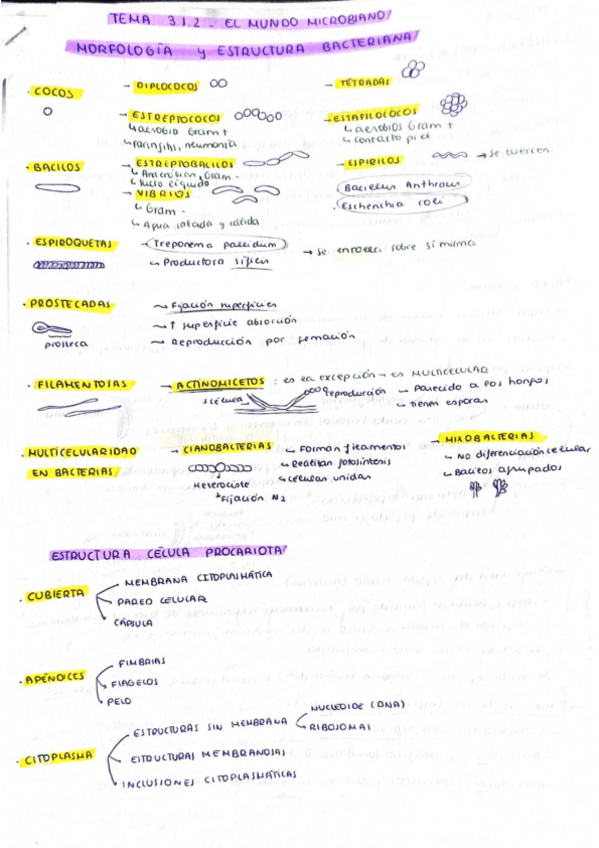 TEMA 3.1.2. EL MUNDO MICROBIANO
MORFOLOGÍA Y ESTRUCTURA BACTERIANA
· COCOS
→ DIPLOCOCOS
→ TÉTRADAS
→ ESTREPTOCOCOS
↳ aerobio Gram +
↳ Faringitis, neumonía
→ ESTAFILOCOCOS
↳ aerobios Gram +
↳ contacto piel
· BACILOS
→ ESTREPTOBACILOS
Gram -
↳ suelo líquido
→ VIBRIOS
↳ Gram -
↳ Agua salada y cálida
→ ESPIRILOS
→ se tuercen
Bacillus Anthracis
Escherichia coli
· ESPIROQUETAS
→ Treponema pallidum
↳ Productora sífilis
→ se enrollan sobre sí misma
· PROSTECADAS
prosteca
→ Fijación superficies
→ ↑ superficie absorción
→ Reproducción por gemación
· FILAMENTOSAS
→ ACTINOMICETOS : es la excepción → es MULTICELULAR
1 célula
reproducción
→ Parecido a los hongos
↳ tienen esporas
· MULTICELULARIDAD
EN BACTERIAS
→ CIANOBACTERIAS
Heterociste
↳ Fijación N2
→ Forman filamentos
↳ Realizan fotosíntesis
↳ células unidas
→ MIXOBACTERIAS
↳ No diferenciación celular
↳ Bacilos agrupados
ESTRUCTURA CÉLULA PROCARIOTA
· CUBIERTA
MEMBRANA CITOPLASMÁTICA
PARED CELULAR
CÁPSULA
· APÉNDICES
FIMBRIAS
FLAGELOS
PELO
· CITOPLASMA
ESTRUCTURAS SIN MEMBRANA
NUCLEOIDE (DNA)
RIBOSOMAS
ESTRUCTURAS MEMBRANOSAS
INCLUSIONES CITOPLASMÁTICAS